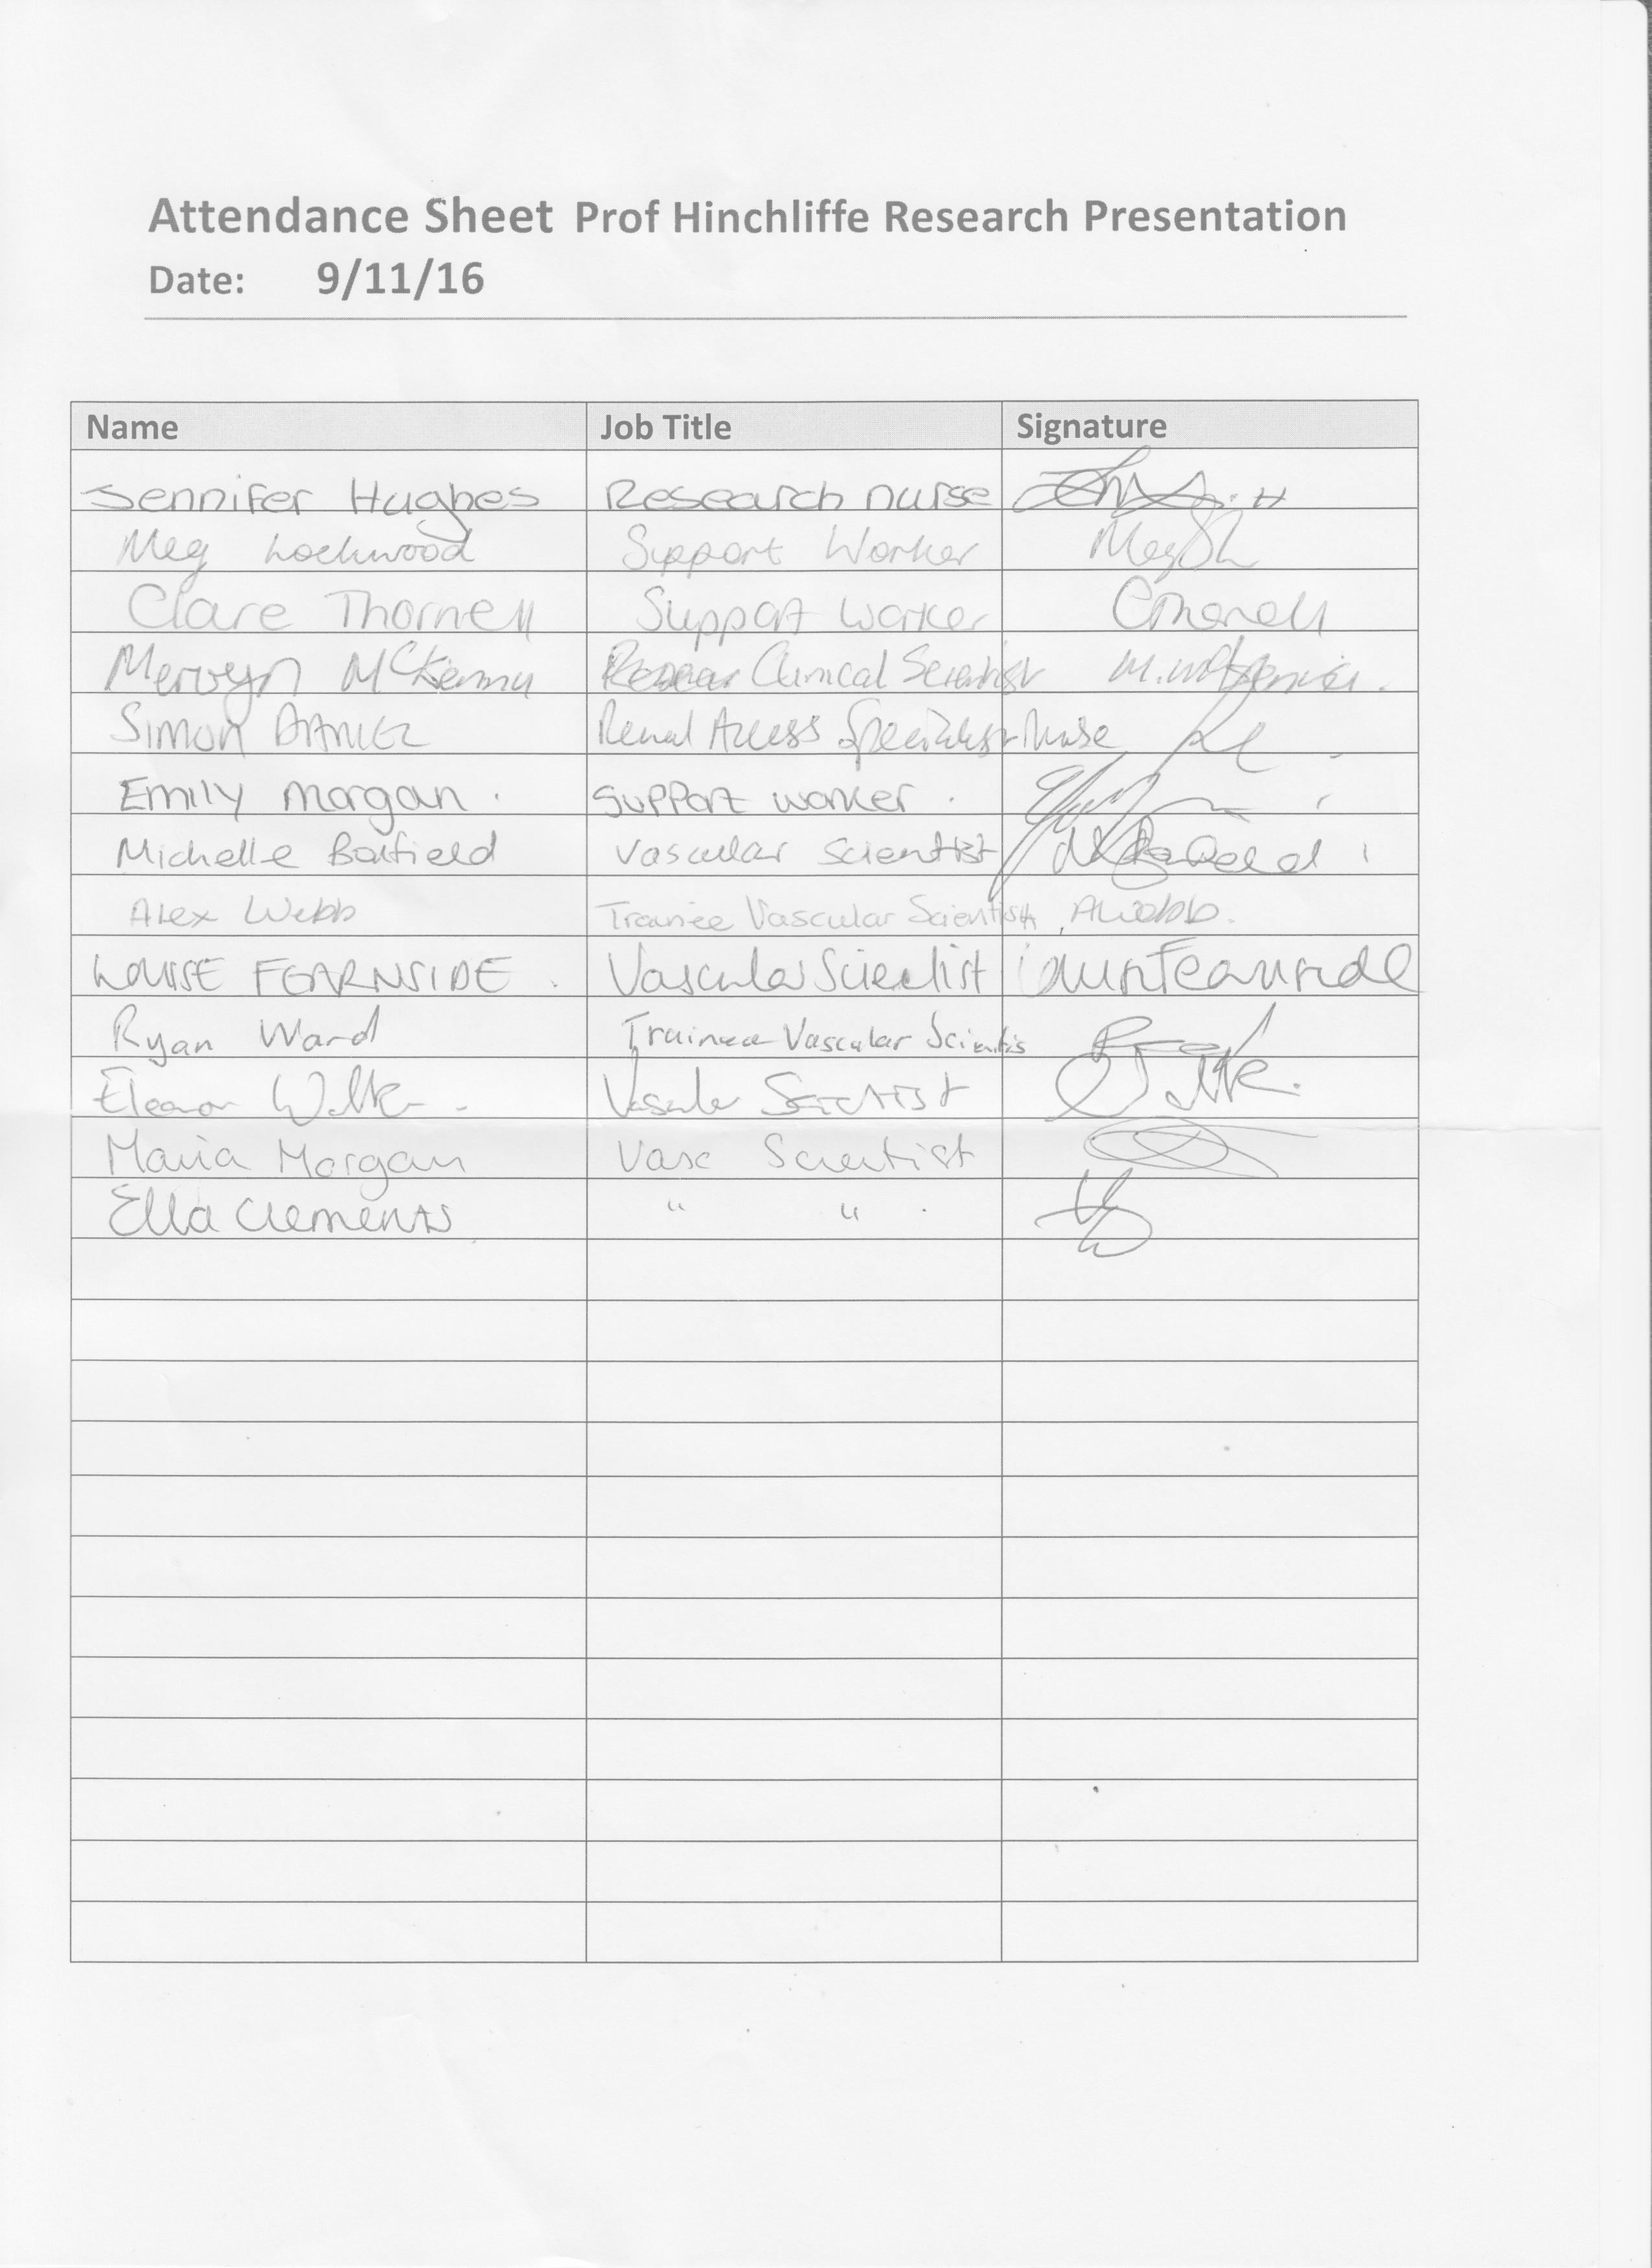 Attendance Sheet Prof Hinchliffe Research Presentation
Date: 9/11/16
Name Job Title Signature
Jennifer Hughes Research nurse
Meg Lockwood Support Worker
Clare Thornell Support Worker CThornell
Mervyn McKenna Clinical Scientist
SIMON DANIEL Renal Access Specialist Nurse
Emily Morgan. Support worker.
Michelle Batfield Vascular Scientist
Alex Webb Trainee Vascular Scientist AWebb.
LOUISE FEARNSIDE. Vascular Scientist
Ryan Ward Trainee Vascular Scientis
Eleanor Vascular Scientist
Maria Morgan Vasc Scientist
Ella Clements " "